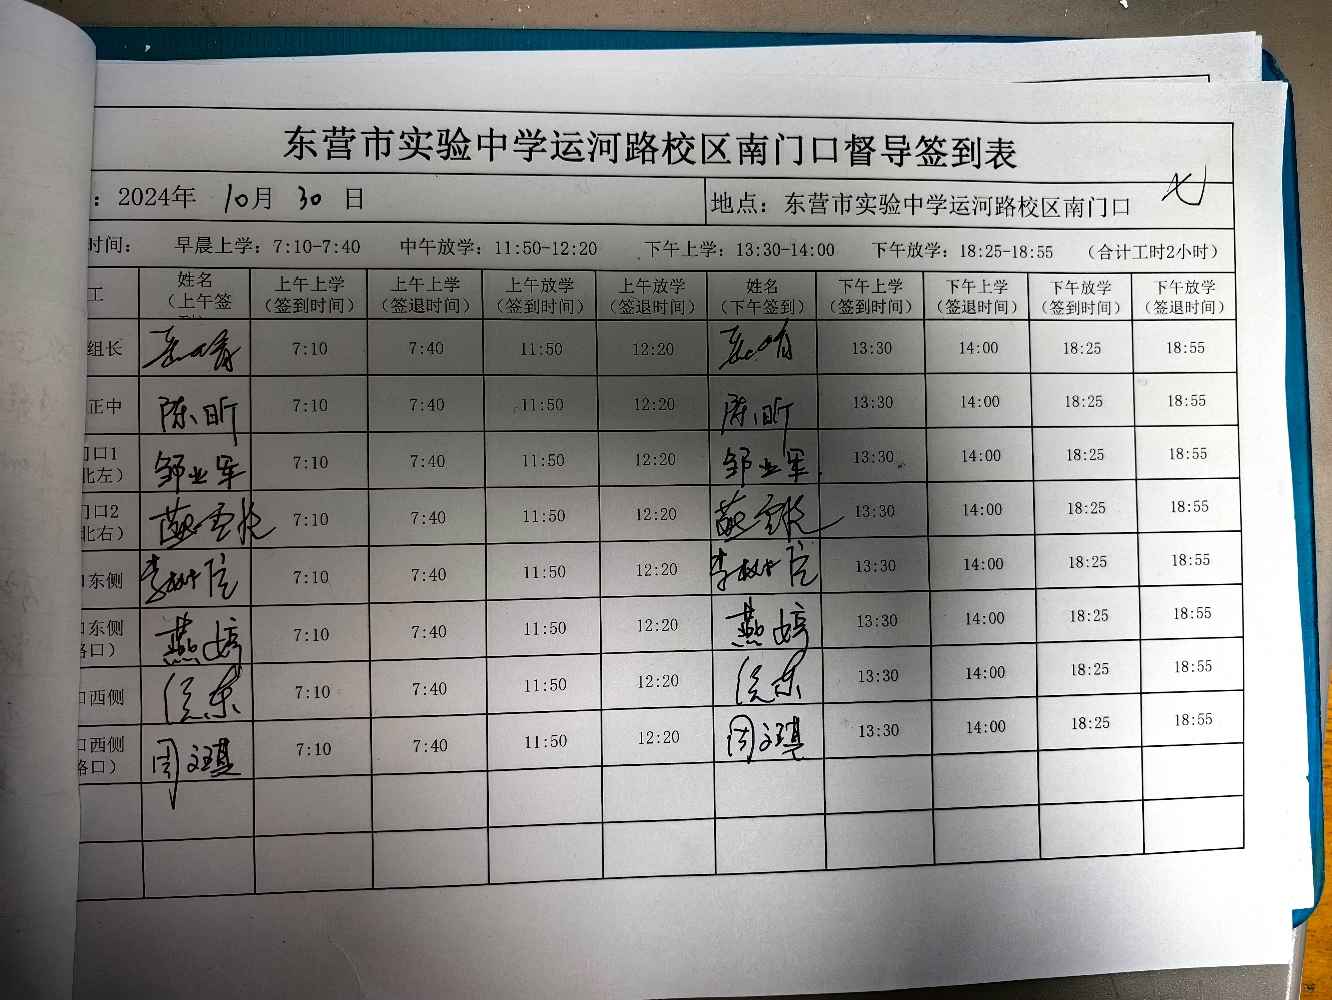 东营市实验中学运河路校区南门口督导签到表
：2024年 10月 30 日 地点：东营市实验中学运河路校区南门口 七
时间： 早晨上学：7:10-7:40 中午放学：11:50-12:20 下午上学：13:30-14:00 下午放学：18:25-18:55 （合计工时2小时）
工 姓名（上午签 上午上学（签到时间） 上午上学（签退时间） 上午放学（签到时间） 上午放学（签退时间） 姓名（下午签到） 下午上学（签到时间） 下午上学（签退时间） 下午放学（签到时间） 下午放学（签退时间）
组长 7:10 7:40 11:50 12:20 13:30 14:00 18:25 18:55
正中 陈昕 7:10 7:40 11:50 12:20 陈昕 13:30 14:00 18:25 18:55
门口1 北左） 邹业军 7:10 7:40 11:50 12:20 邹业军 13:30 14:00 18:25 18:55
门口2 北右） 7:10 7:40 11:50 12:20 13:30 14:00 18:25 18:55
东侧 李树信 7:10 7:40 11:50 12:20 李树信 13:30 14:00 18:25 18:55
口东侧 路口） 燕婷 7:10 7:40 11:50 12:20 燕婷 13:30 14:00 18:25 18:55
口西侧 7:10 7:40 11:50 12:20 13:30 14:00 18:25 18:55
口西侧 路口） 周文琪 7:10 7:40 11:50 12:20 周文琪 13:30 14:00 18:25 18:55